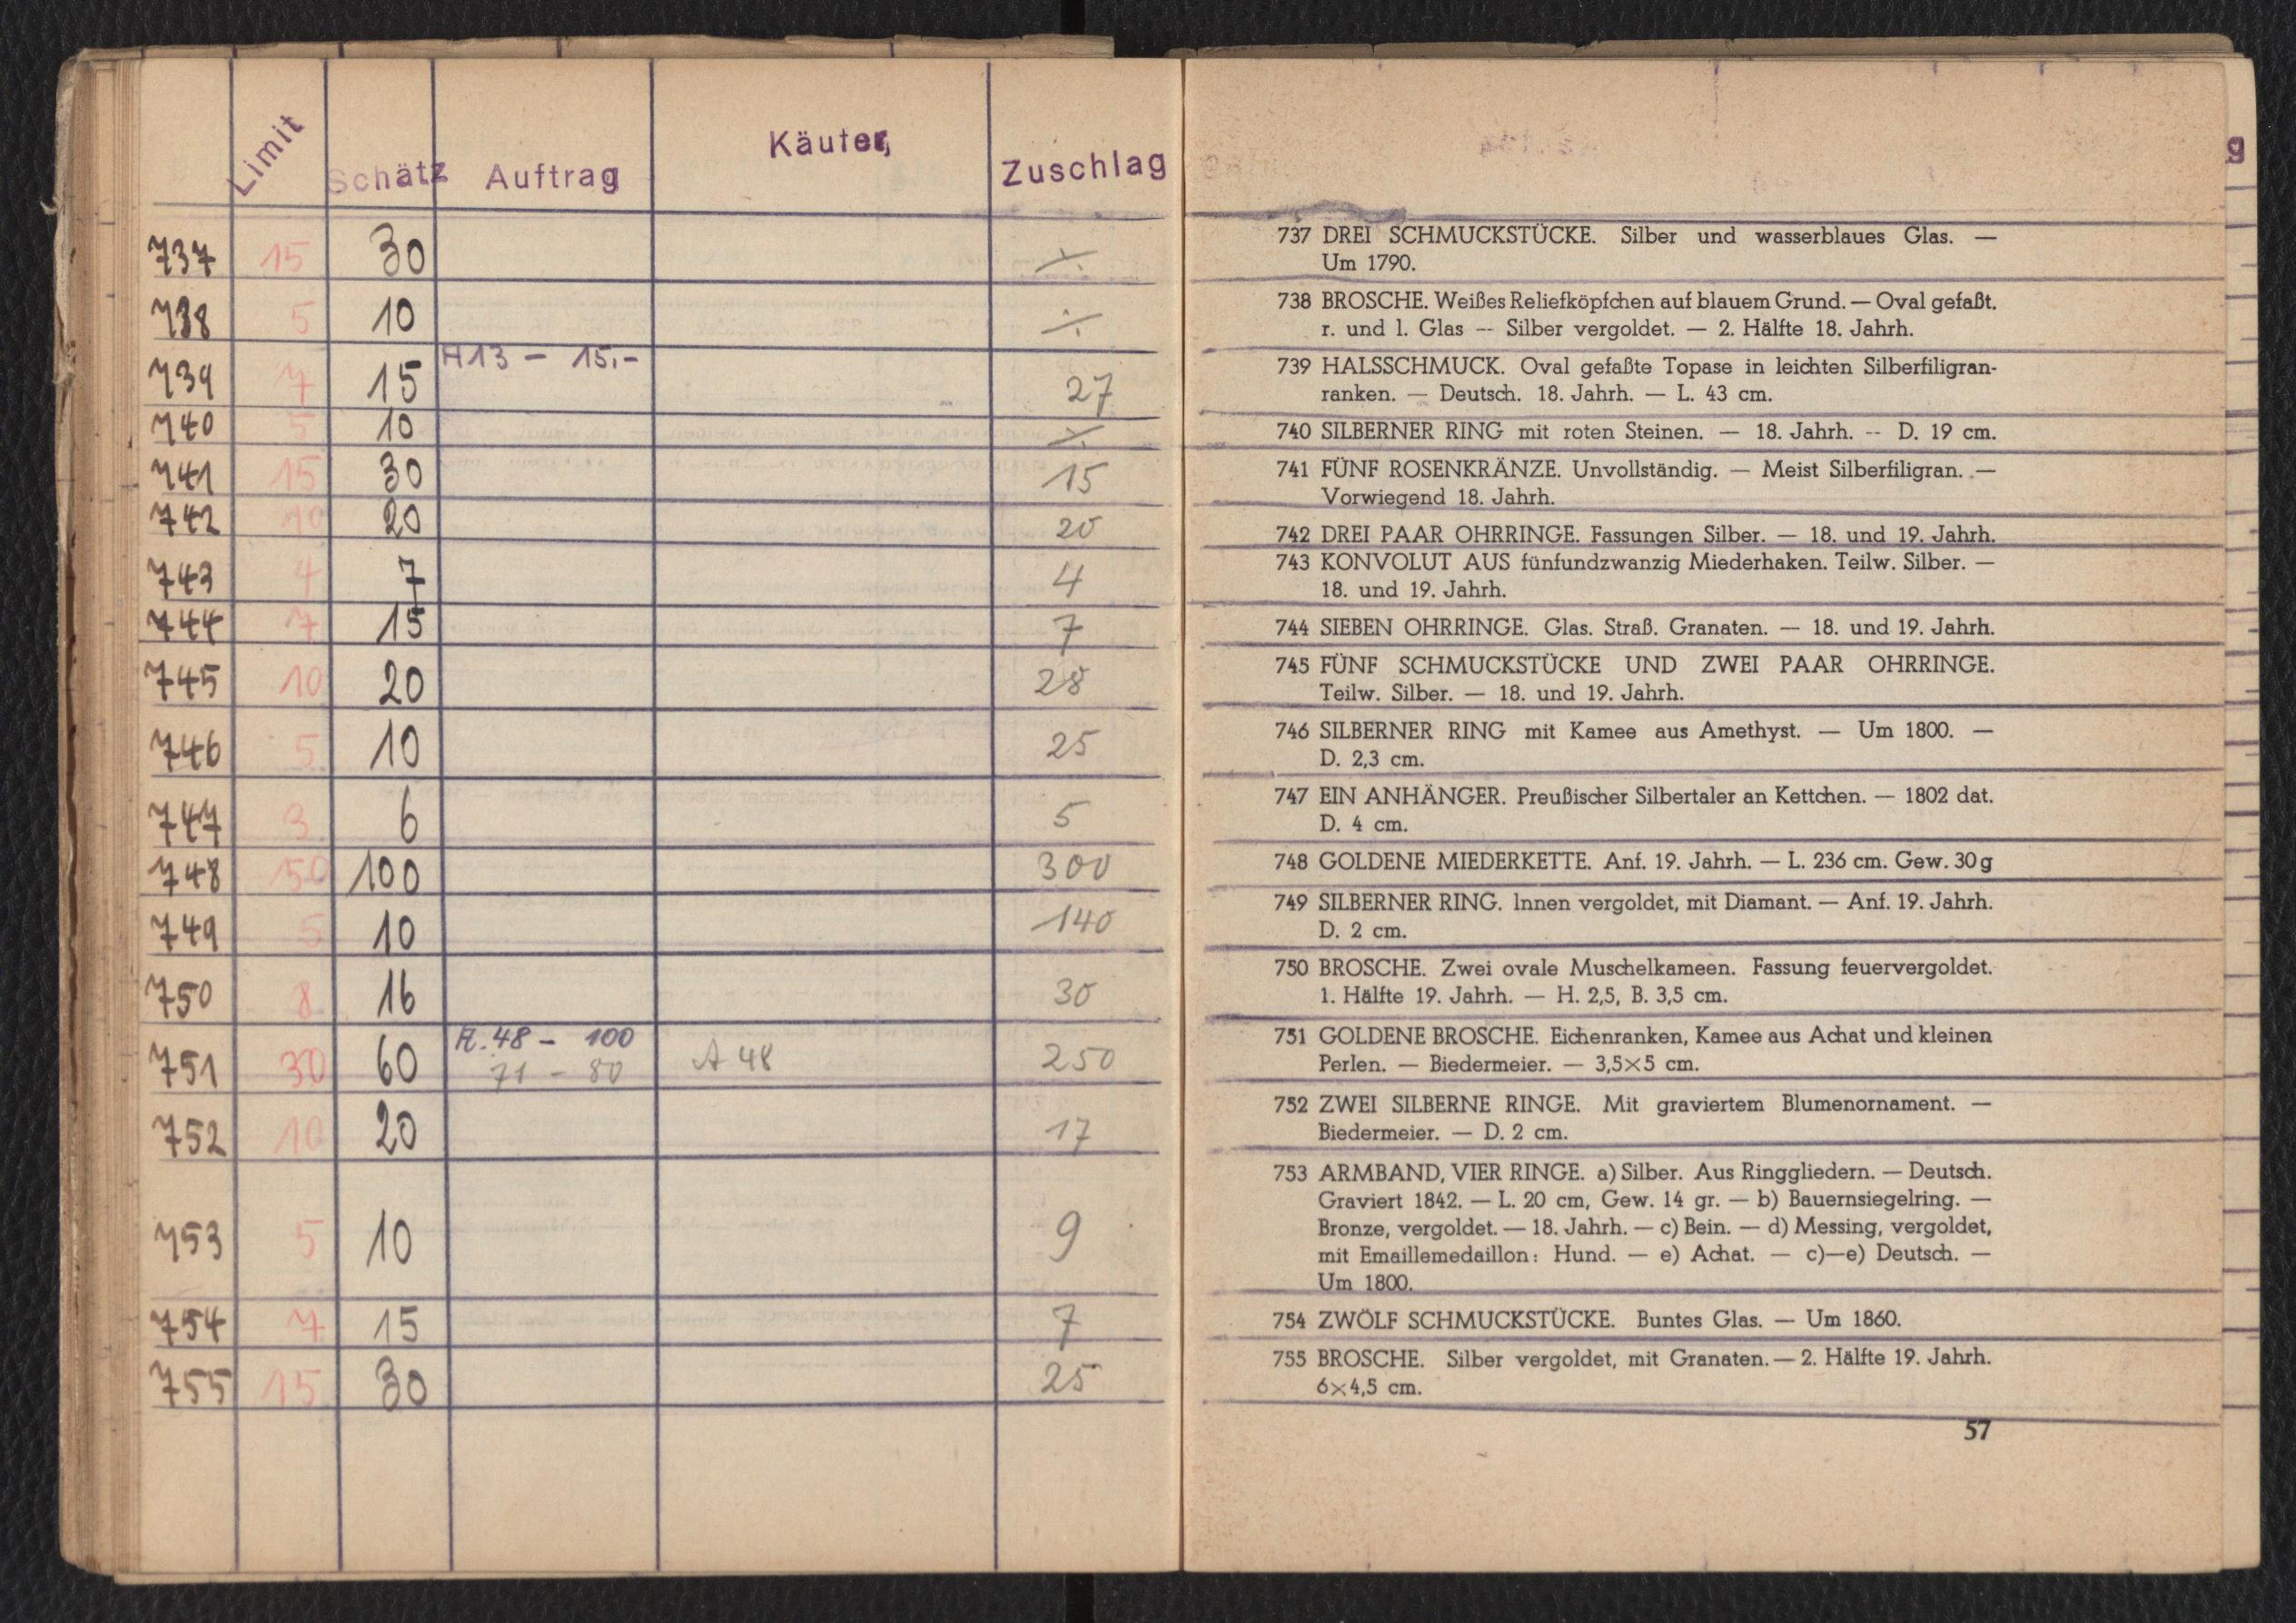 Limit Schätz Auftrag Käufer, Zuschlag
737 15 30 ⁒
738 5 10 ⁒
739 7 15 A13 — 15.- 27
740 5 10 ⁒
741 15 30 15
742 10 20 20
743 4 7 4
744 7 15 7
745 10 20 28
746 5 10 25
747 3 6 5
748 50 100 300
749 5 10 140
750 8 16 30
751 30 60 A.48 — 100 A 48 250
71 — 80
752 10 20 17
753 5 10 9
754 7 15 7
755 15 30 25
g
737 DREI SCHMUCKSTÜCKE. Silber und wasserblaues Glas. —
Um 1790.
738 BROSCHE. Weißes Reliefköpfchen auf blauem Grund. — Oval gefaßt.
r. und l. Glas -- Silber vergoldet. — 2. Hälfte 18. Jahrh.
739 HALSSCHMUCK. Oval gefaßte Topase in leichten Silberfiligran-
ranken. — Deutsch. 18. Jahrh. — L. 43 cm.
740 SILBERNER RING mit roten Steinen. — 18. Jahrh. -- D. 19 cm.
741 FÜNF ROSENKRÄNZE. Unvollständig. — Meist Silberfiligran. —
Vorwiegend 18. Jahrh.
742 DREI PAAR OHRRINGE. Fassungen Silber. — 18. und 19. Jahrh.
743 KONVOLUT AUS fünfundzwanzig Miederhaken. Teilw. Silber. —
18. und 19. Jahrh.
744 SIEBEN OHRRINGE. Glas. Straß. Granaten. — 18. und 19. Jahrh.
745 FÜNF SCHMUCKSTÜCKE UND ZWEI PAAR OHRRINGE.
Teilw. Silber. — 18. und 19. Jahrh.
746 SILBERNER RING mit Kamee aus Amethyst. — Um 1800. —
D. 2,3 cm.
747 EIN ANHÄNGER. Preußischer Silbertaler an Kettchen. — 1802 dat.
D. 4 cm.
748 GOLDENE MIEDERKETTE. Anf. 19. Jahrh. — L. 236 cm. Gew. 30 g
749 SILBERNER RING. Innen vergoldet, mit Diamant. — Anf. 19. Jahrh.
D. 2 cm.
750 BROSCHE. Zwei ovale Muschelkameen. Fassung feuervergoldet.
1. Hälfte 19. Jahrh. — H. 2,5, B. 3,5 cm.
751 GOLDENE BROSCHE. Eichenranken, Kamee aus Achat und kleinen
Perlen. — Biedermeier. — 3,5×5 cm.
752 ZWEI SILBERNE RINGE. Mit graviertem Blumenornament. —
Biedermeier. — D. 2 cm.
753 ARMBAND, VIER RINGE. a) Silber. Aus Ringgliedern. — Deutsch.
Graviert 1842. — L. 20 cm, Gew. 14 gr. — b) Bauernsiegelring. —
Bronze, vergoldet. — 18. Jahrh. — c) Bein. — d) Messing, vergoldet,
mit Emaillemedaillon: Hund. — e) Achat. — c)—e) Deutsch. —
Um 1800.
754 ZWÖLF SCHMUCKSTÜCKE. Buntes Glas. — Um 1860.
755 BROSCHE. Silber vergoldet, mit Granaten. — 2. Hälfte 19. Jahrh.
6×4,5 cm.
57